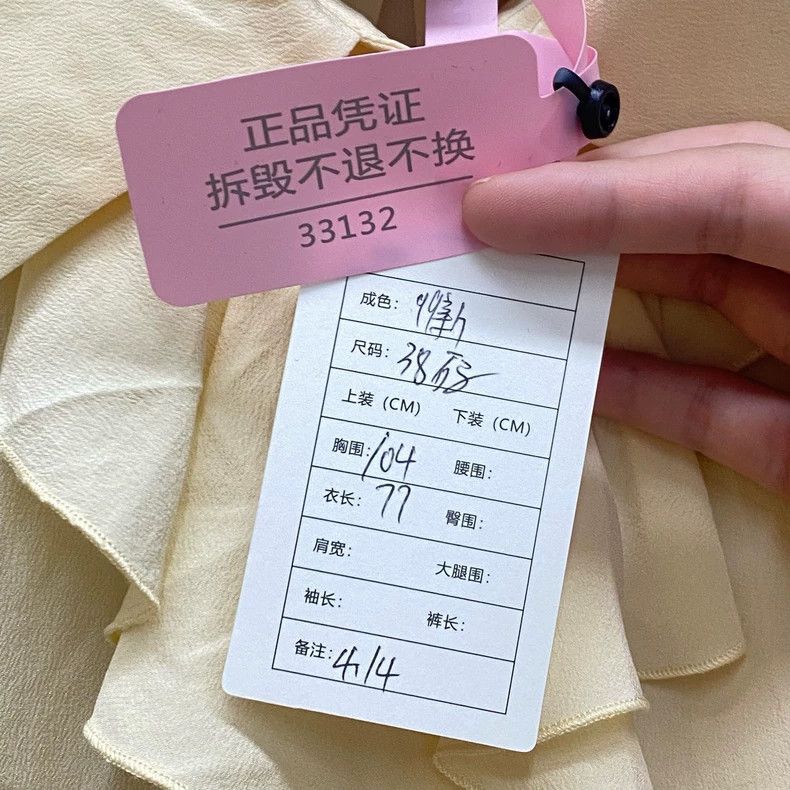 正品凭证
拆毁不退不换
33132
成色: 99新
尺码: 38码
上装 (CM) 下装 (CM)
胸围: 104 腰围:
衣长: 77 臀围:
肩宽: 大腿围:
袖长: 裤长:
备注: 4.14